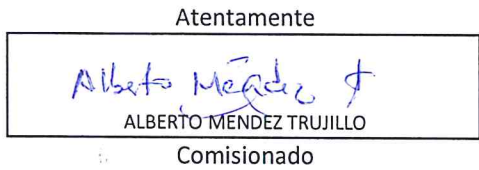 Atentamente
Alberto Méndez T
ALBERTO MENDEZ TRUJILLO
Comisionado